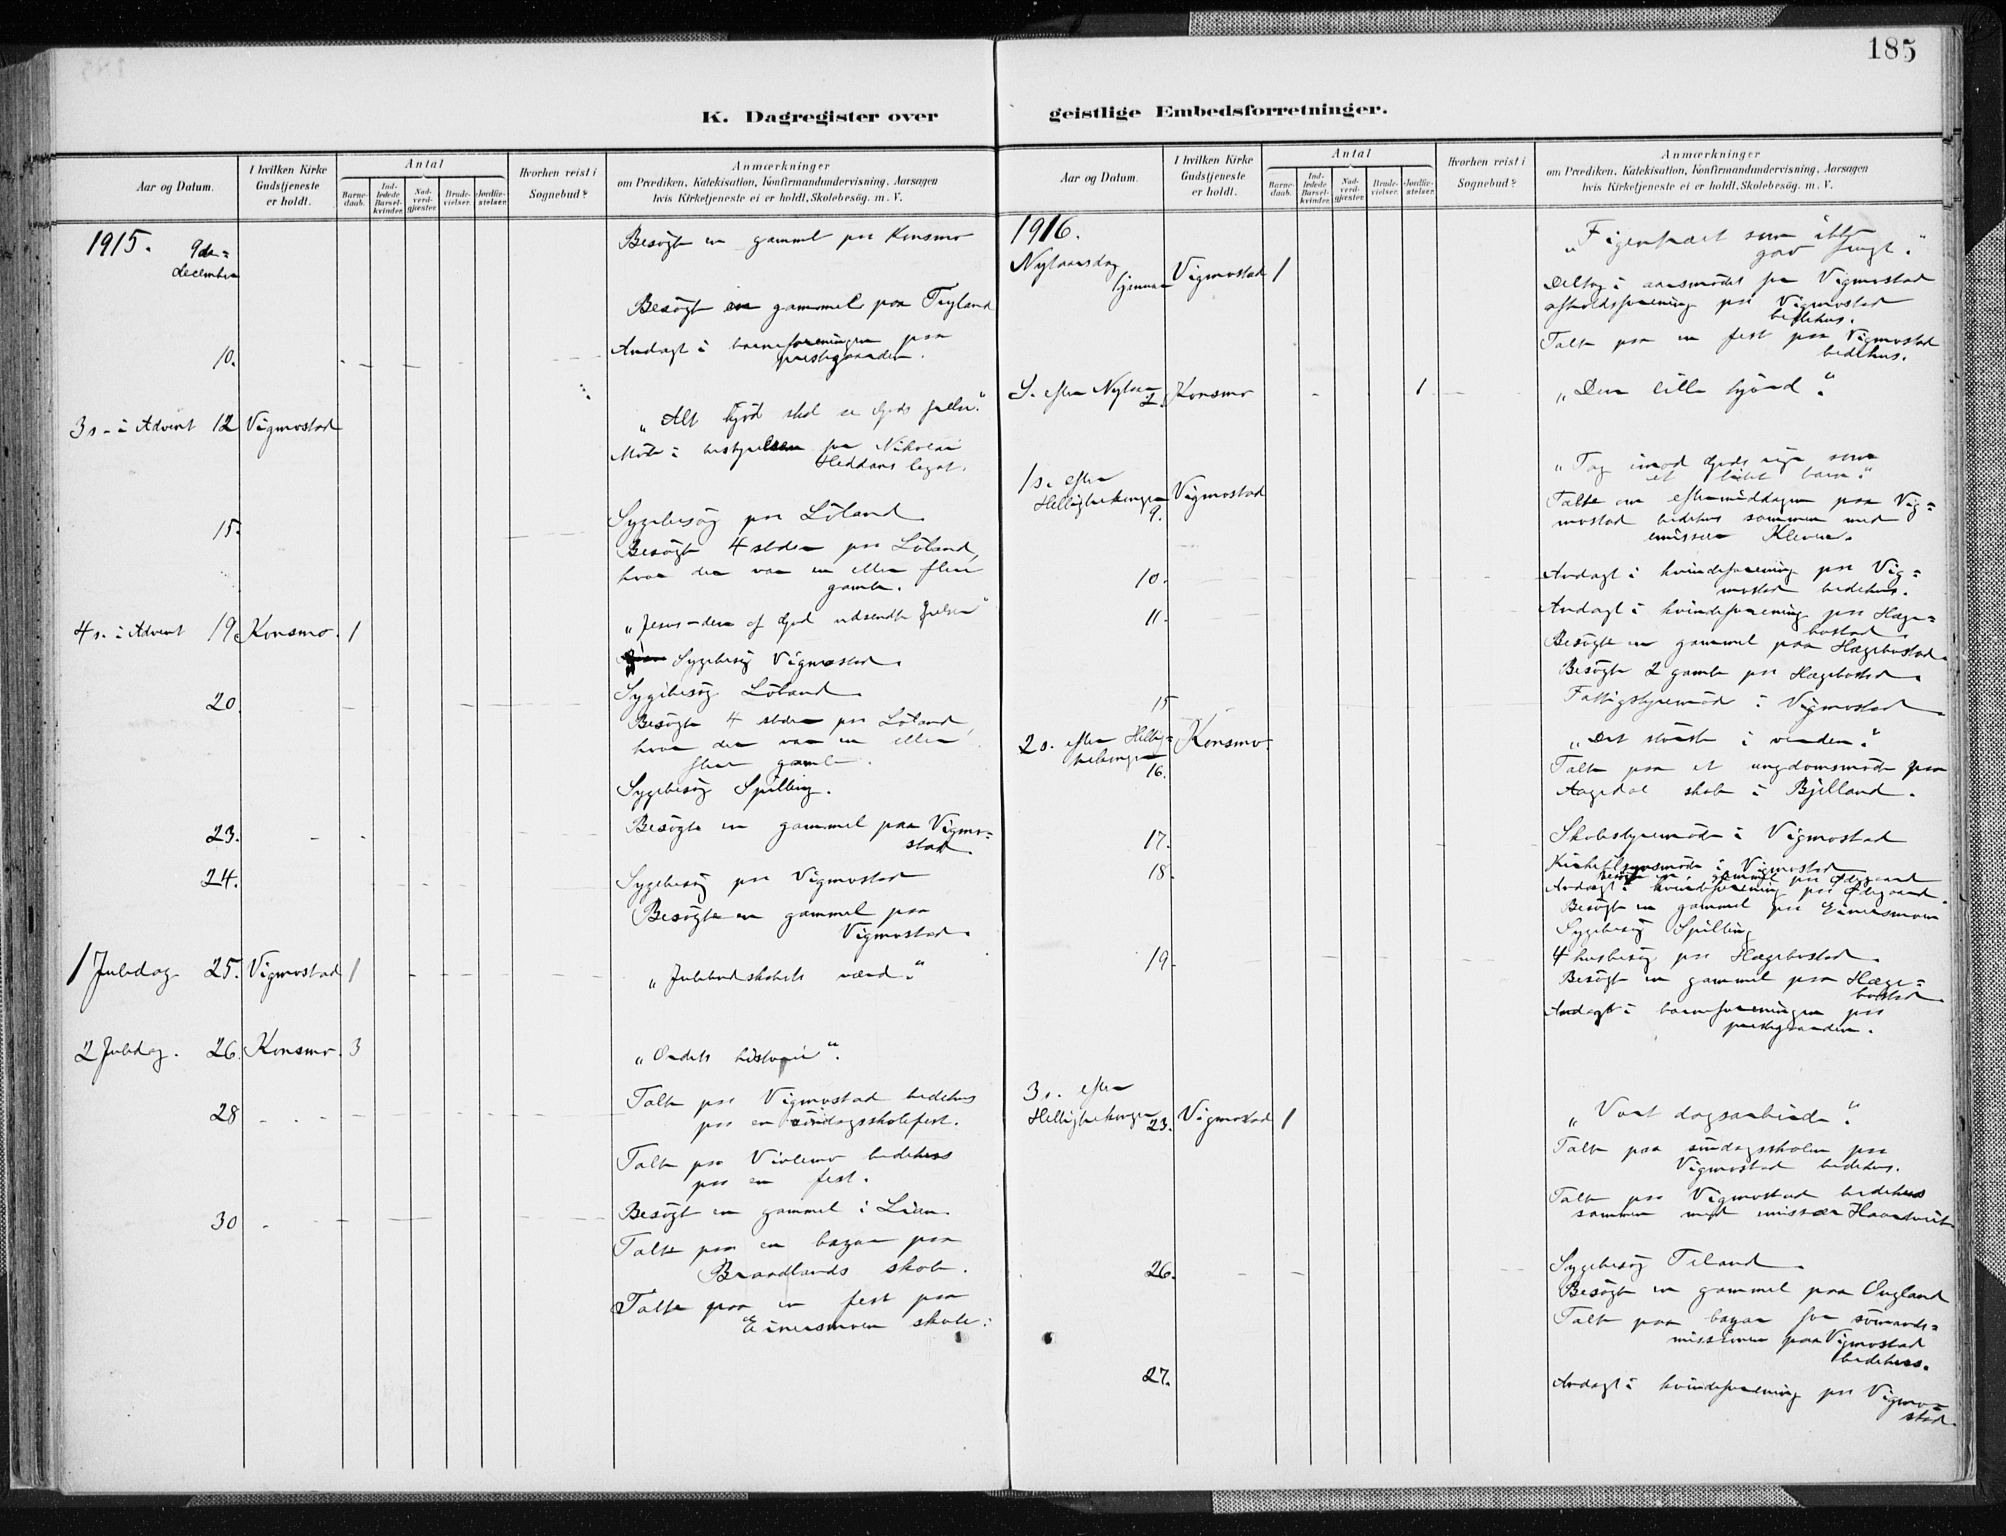 185
K. Dagregister over geistlige Embedsforretninger.
Aar og Datum.
I hvilken Kirke Gudstjeneste er holdt.
Antal
Barnedaab.
Indledede Barselkvinder.
Nadverdgjæster.
Brudevielser.
Jordfæstelser.
Hvorhen reist i Sognebud?
Anmærkninger
om Prædiken, Katekisation, Konfirmandundervisning, Aarsagen
hvis Kirketjeneste ei er holdt, Skolebesøg. m. V.
1915. 9de december
Besøgte en gammel paa Konsmo
Besøgte en gammel paa Tryland
10.
Andagt i barneforeningen paa
prestegaarden.
3 s. i Advent 12 Vigmostad
"Alt kjød skal se Guds frelse."
Møte i bestyrelsen for Nikolai
Heddans legat.
15.
Sygebesøg paa Løland
Besøgte 4 steder paa Løland,
hvor der var en eller flere
gamle.
4 s. i Advent 19. Konsmo. 1
"Jesus - den af Gud udsendte frelser"
Sygebesøg Vigmostad.
20.
Sygebesøg Løland.
Besøgte 4 steder paa Løland
hvor der var en eller
flere gamle.
Sygebesøg Spilling.
23.
Besøgte en gammel paa Vigmo=
stad.
24.
Sygebesøg paa Vigmostad
Besøgte en gammel paa
Vigmostad.
1 Juledag 25. Vigmostad 1
"Julebudskabets værd."
2 Juledag. 26. Konsmo. 3
"Ordets historie".
28
Talte paa Vigmostad bedehus
paa en søndagsskolefest.
Talte paa Vivlemo bedehus
paa en fest.
30
Besøgte en gammel i Lian.
Talte paa en bazar paa
Brandlands skole.
Talte paa en fest paa
Einersmoen skole.
Aar og Datum.
I hvilken Kirke Gudstjeneste er holdt.
Antal
Barnedaab.
Indledede Barselkvinder.
Nadverdgjæster.
Brudevielser.
Jordfæstelser.
Hvorhen reist i Sognebud?
Anmærkninger
om Prædiken, Katekisation, Konfirmandundervisning, Aarsagen
hvis Kirketjeneste ei er holdt, Skolebesøg. m. V.
1916.
Nytaarsdag 1 januar Vigmostad 1
"Figentræet som ikke
gav frugt."
Deltog i aarsmødet for Vigmostad
afholdsforening paa Vigmostad
bedehus.
Talte paa en fest paa Vigmostad
bedehus.
S. efter Nytaar 2. Konsmo 1
"Den lille hjord".
1 s. efter
Helligtrekonger 9. Vigmostad
"Tag imod Guds rige som
et lidet barn."
Talte om eftermiddagen paa Vig=
mostad bedehus sammen med
emissær Kleven.
10.
Andagt i kvindeforening paa Vig=
mostad bedehus.
11.
Andagt i kvindeforening paa Hæge=
bostad.
Besøgte en gammel paa Hægebostad.
Besøgte 2 gamle paa Hægebostad.
15
Fattigstyremøde i Vigmostad
2 s. efter Hellig=
trekonger 16. Konsmo.
"Det største i verden."
Talte paa et ungdomsmøde paa
Aagedal skole i Bjelland.
17.
Skolestyremøde i Vigmostad
18.
Kirketilsynsmøde i Vigmostad
Besøgte en gammel paa Ødegaard
Andagt i kvindeforening paa Ødegaard.
Besøgte en gammel paa Einersmoen
Sygebesøg Spilling
19.
4 husbesøg paa Hægebostad.
Besøgte en gammel paa Hæge=
bostad.
Andagt i barneforeningen paa
prestegaarden.
3 s. efter
Helligtrekonger 23. Vigmostad 1
"Vort dagsarbeide."
Talte paa søndagsskolen paa
Vigmostad bedehus.
Talte paa Vigmostad bedehus
sammen med emissær
26.
Sygebesøg Teland.
Besøgte en gammel paa
Talte paa bazar for sømands=
missionen paa Vigmostad
bedehus.
27.
Andagt i kvindeforening paa Vigmo=
stad.